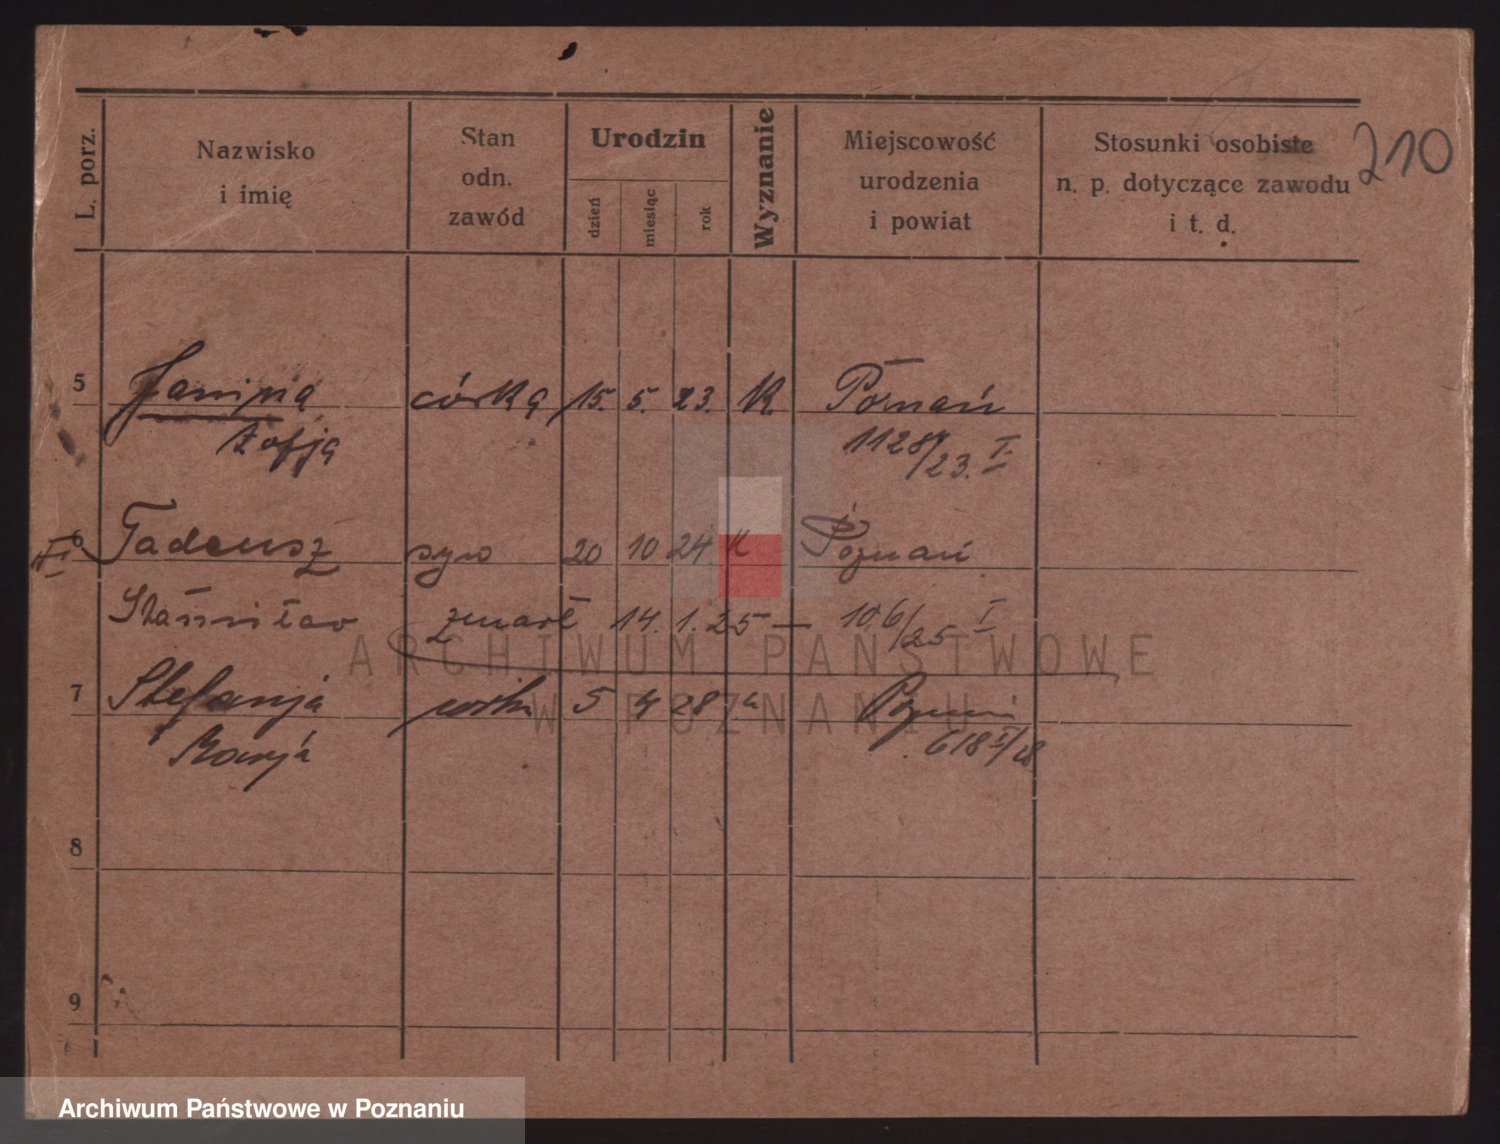 L. porz.
Nazwisko
i imię
Stan
odn.
zawód
Urodzin
dzień
miesiąc
rok
Wyznanie
Miejscowość
urodzenia
i powiat
Stosunki osobiste
n. p. dotyczące zawodu
i t. d.
210
5 Janina córka 15. 5. 23. K. Poznań
Zofja 1128/23. I.
6 Tadeusz syn 20 10 24. K Poznań
Stanisław zmarł 14. 1. 25 — 106/25 I
7 Stefanja córka 5 4 28 k Poznań
Marja 618 II/28
8
9
ARCHIWUM PAŃSTWOWE
W POZNANIU
Archiwum Państwowe w Poznaniu